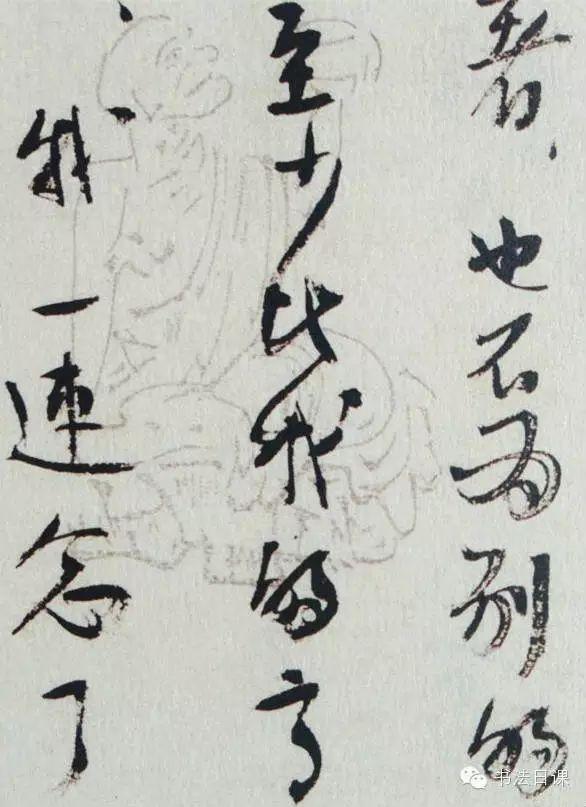 者、也不为别的
至少比我的高
我一連念了
书法日课